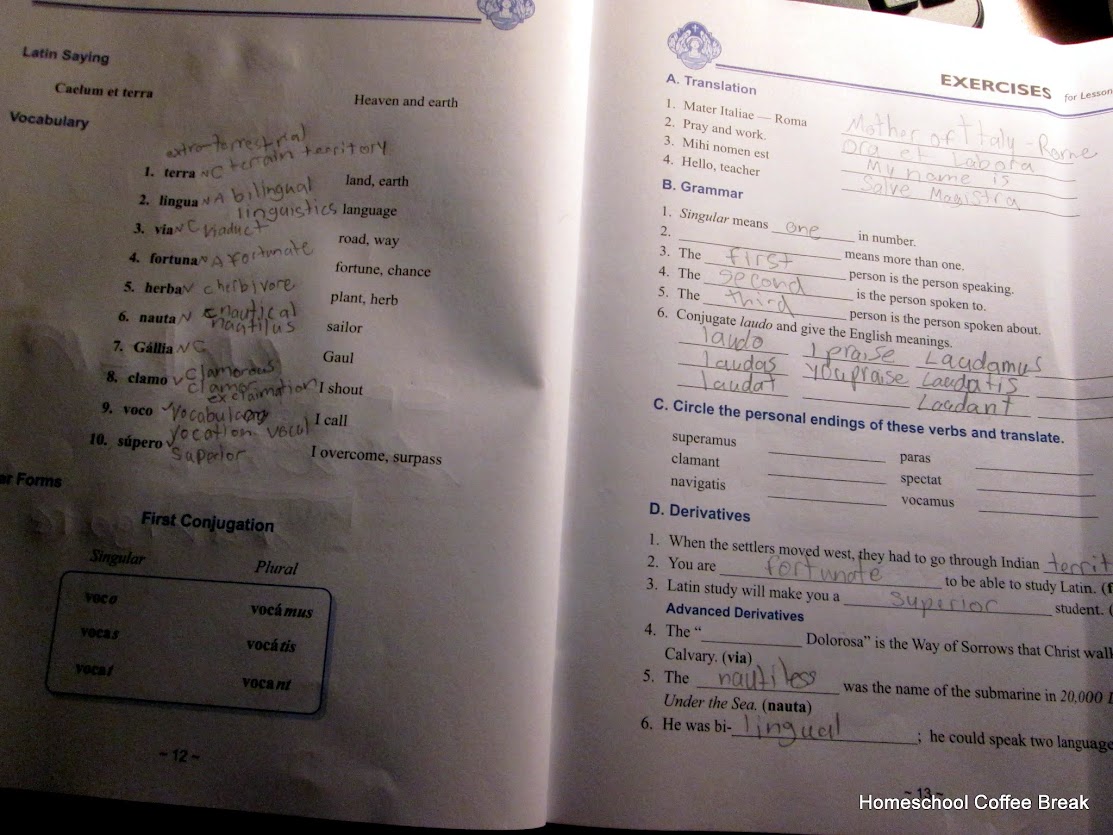 Latin Saying
Caelum et terra Heaven and earth
Vocabulary
extra-terrestrial
terrain territory
1. terra NC land, earth
2. lingua NA bilingual
linguistics language
3. via NC viaduct road, way
4. fortuna NA fortunate fortune, chance
5. herba N herbivore plant, herb
6. nauta N nautical
nautilus sailor
7. Gállia NC Gaul
8. clamo V clamorous
clamor
exclaimation I shout
9. voco Vocabulary I call
vocation vocal
10. súpero V I overcome, surpass
superior
ar Forms
First Conjugation
Singular Plural
voco vocámus
vocas vocátis
vocat vocant
~ 12 ~
EXERCISES for Lesson
A. Translation
1. Mater Italiae — Roma Mother of Italy - Rome
2. Pray and work. Ora et Labora
3. Mihi nomen est My name is
4. Hello, teacher Salve Magistra
B. Grammar
1. Singular means one in number.
2. means more than one.
3. The first person is the person speaking.
4. The second is the person spoken to.
5. The third person is the person spoken about.
6. Conjugate laudo and give the English meanings.
laudo I praise Laudamus
laudas you praise Laudatis
laudat Laudant
C. Circle the personal endings of these verbs and translate.
superamus paras
clamant spectat
navigatis vocamus
D. Derivatives
1. When the settlers moved west, they had to go through Indian territ
2. You are fortunate to be able to study Latin. (f
3. Latin study will make you a superior student. (
Advanced Derivatives
4. The “ Dolorosa” is the Way of Sorrows that Christ walk
Calvary. (via)
5. The nautiless was the name of the submarine in 20,000 L
Under the Sea. (nauta)
6. He was bi-lingual ; he could speak two language
~ 13 ~
Homeschool Coffee Break